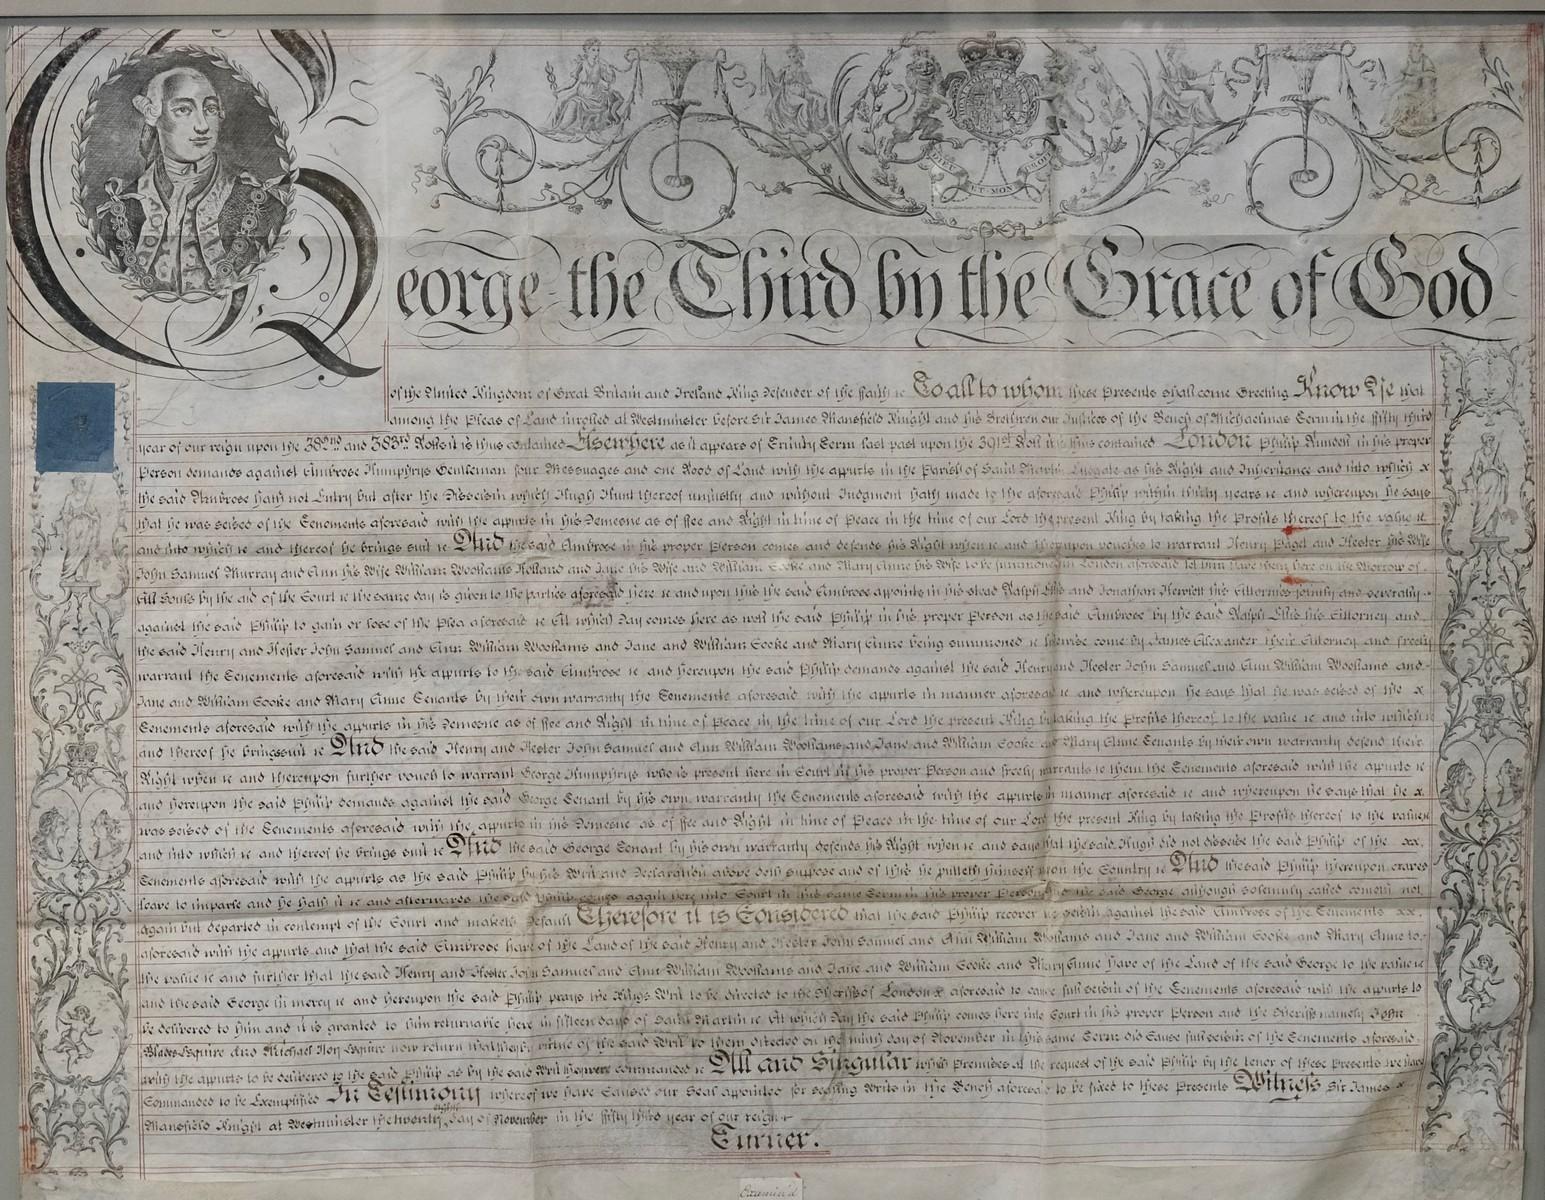 DIEU ET MON DROIT
George the Third by the Grace of God
of the United Kingdom of Great Britain and Ireland King Defender of the Faith &c To all to whom these Presents shall come Greeting Know Ye that
among the Pleas of Land inrolled at Westminster before Sir James Mansfield Knight and his Brethren our Justices of the Bench of Michaelmas Term in the fifty third
year of our reign upon the and Roll it is thus contained Elsewhere as it appears of Trinity Term last past upon the 391st Roll it is thus contained London Philip in his proper
Person demands against Ambrose Humphrys Gentleman four Messuages and one Rood of Land with the appurts in the Parish of Saint Martin Ludgate as his Right and Inheritance and into which x
the said Ambrose hath not Entry but after the Disseisin which Hugh Hunt thereof unjustly and without Judgment hath made to the aforesaid Philip within thirty years &c and whereupon he says
that he was seised of the Tenements aforesaid with the appurts in his Demesne as of Fee and Right in time of Peace in the time of our Lord the present King by taking the Profits thereof to the value &c
and into which &c and thereof he brings suit &c And the said Ambrose in his proper Person comes and defends his Right when &c and thereupon vouches to warrant Henry Paget and Hester his Wife
John Samuel Murray and Ann his Wife William Woolhams and Jane his Wife and William Cooke and Mary Anne his Wife to be summoned in London aforesaid let him have them here on the Morrow of
All Souls by the aid of the Court &c the same day is given to the parties aforesaid here &c and upon this the said Ambrose appoints in his stead Ralph Ellis and Jonathan Hewlett his Attornies jointly and severally
against the said Philip to gain or lose of the Plea aforesaid &c At which Day comes here as well the said Philip in his proper Person as the said Ambrose by the said Ralph Ellis his Attorney and
the said Henry and Hester John Samuel and Ann William Woolhams and Jane and William Cooke and Mary Anne being summoned &c likewise come by James Alexander their Attorney and freely
warrant the Tenements aforesaid with the appurts to the said Ambrose &c and hereupon the said Philip demands against the said Henry and Hester John Samuel and Ann William Woolhams and
Jane and William Cooke and Mary Anne Tenants by their own warranty the Tenements aforesaid with the appurts in manner aforesaid &c and whereupon he says that he was seised of the x
Tenements aforesaid with the appurts in his Demesne as of Fee and Right in time of Peace in the time of our Lord the present King by taking the Profits thereof to the value &c and into which &c
and thereof he brings suit &c And the said Henry and Hester John Samuel and Ann William Woolhams and Jane and William Cooke and Mary Anne Tenants by their own warranty defend their
Right when &c and thereupon further vouch to warrant George Humphrys who is present here in Court in his proper Person and freely warrants &c them the Tenements aforesaid with the appurts &c
and hereupon the said Philip demands against the said George Tenant by his own warranty the Tenements aforesaid with the appurts in manner aforesaid &c and whereupon he says that he x
was seised of the Tenements aforesaid with the appurts in his Demesne as of Fee and Right in time of Peace in the time of our Lord the present King by taking the Profits thereof to the value &c
and into which &c and thereof he brings suit &c And the said George Tenant by his own warranty defends his Right when &c and says that the said Hugh did not disseise the said Philip of the xx
Tenements aforesaid with the appurts as the said Philip by his Writ and Declaration above doth suppose and of this he putteth himself upon the Country &c And the said Philip thereupon craves
leave to imparle and he hath it &c and afterwards the said Philip comes again here into Court in this same Term in his proper Person and the said George although solemnly called cometh not
again but departed in contempt of the Court and makes default Therefore it is Considered that the said Philip recover his seisin against the said Ambrose of the Tenements xx
aforesaid with the appurts and that the said Ambrose have of the Land of the said Henry and Hester John Samuel and Ann William Woolhams and Jane and William Cooke and Mary Anne to
the value &c and further that the said Henry and Hester John Samuel and Ann William Woolhams and Jane and William Cooke and Mary Anne have of the Land of the said George to the value &c
and the said George in mercy &c and hereupon the said Philip prays the Kings Writ to be directed to the Sheriffs of London x aforesaid to cause full seisin of the Tenements aforesaid with the appurts to
be delivered to him and it is granted to him returnable here in fifteen days of Saint Martin &c At which Day the said Philip comes here into Court in his proper Person and the Sheriffs namely John
Blades Esquire and Michael Hoy Esquire now return that they by virtue of the said Writ to them directed on the ninth day of November in this same Term did Cause full seisin of the Tenements aforesaid
with the appurts to be delivered to the said Philip as by the said Writ they were commanded &c All and Singular which Premises at the request of the said Philip by the tenor of these Presents we have
Commanded to be Exemplified In Testimony whereof we have Caused our Seal appointed for sealing Writs in the Bench aforesaid to be fixed to these Presents Witness Sir James x
Mansfield Knight at Westminster the twenty eighth day of November in the fifty third year of our reign
Turner.
Examin'd